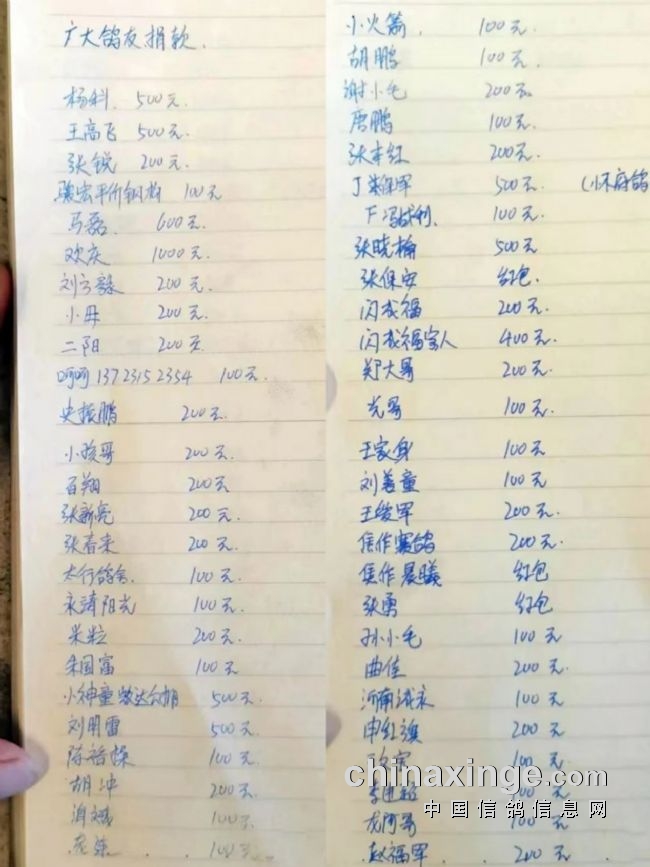 广大鸽友捐款.
杨科. 500元.
王高飞 500元.
张锐 200元
骏宏平价钢构 100元
马磊. 600元.
欢庆 1000元.
刘 200元.
小毋 200元.
二阳 200元
呵呵 137 2315 2354 100元.
史振鹏 200元.
小孩哥 200元
百翔 200元
张新亮 200元
张春来 200元
太行鸽舍. 100元.
永靖阳光 100元.
米粒 200元
朱国富 100元
小神童 500元.
刘朋雷 500元
陈裕 100元.
胡冲 200元.
100元
100元
小火箭. 100元.
胡鹏 100元.
谢小毛 200元.
唐鹏 100元.
张丰红 200元.
丁 500元.
冯战利. 100元.
张晓楠 500元
张保安 红包.
闪成福 200元.
闪成福家人 400元.
郑大哥 200元.
光哥 100元.
王家身 100元.
刘善童 100元
王俊军 200元.
焦作赛鸽 200元.
焦作晨曦 红包
张勇 红包
孙小毛 100元
曲佳 200元.
河南 100元
申红旗 200元
100元.
100元
龙阿哥 100元
赵福军 200元.
chinaxinge.com
中国信鸽信息网